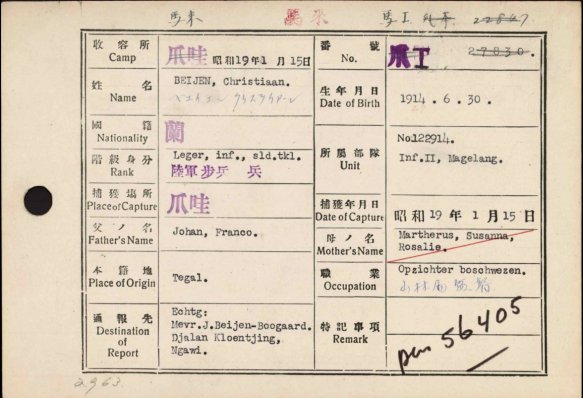 馬来 馬来 馬工
収容所 Camp 爪哇 昭和19年1月15日 番號 No. 爪工 27830.
姓名 Name BEIJEN, Christiaan. 生年月日 Date of Birth 1914. 6. 30.
國籍 Nationality 蘭 所属部隊 Unit No122914.
Inf.II, Magelang.
階級身分 Rank Leger, inf., sld.tkl.
陸軍步兵 兵
捕獲場所 Place of Capture 爪哇 捕獲年月日 Date of Capture 昭和19年1月15日
父ノ名 Father's Name Johan, Franco. 母ノ名 Mother's Name Martherus, Susanna,
Rosalie.
本籍地 Place of Origin Tegal. 職業 Occupation Opzichter boschwezen.
通報先 Destination of Report Echtg:
Mevr.J.Beijen-Boogaard.
Djalan Kloentjing,
Ngawi.
特記事項 Remark 56405
2963.